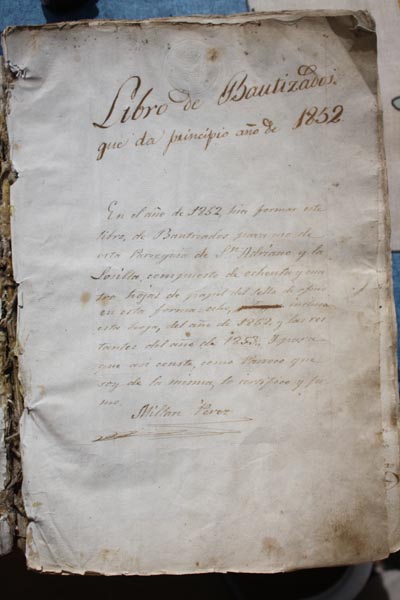 Libro de Bautizados
que da principio año de 1852
En el año de 1852, hia formar este
libro, de Bautizados para uso de
esta Parroquia de Sn. Adriano y la
Losilla, compuesto de ochenta y cua
tro hojas de papel del sello de ofici
en esta forma: ocho, inclusa
esta hoja, del año de 1852 y las res
tantes del año de 1853. Y para
que asi conste, como Parroco que
soy de la misma, lo certifico y fir
mo.
Millan Perez